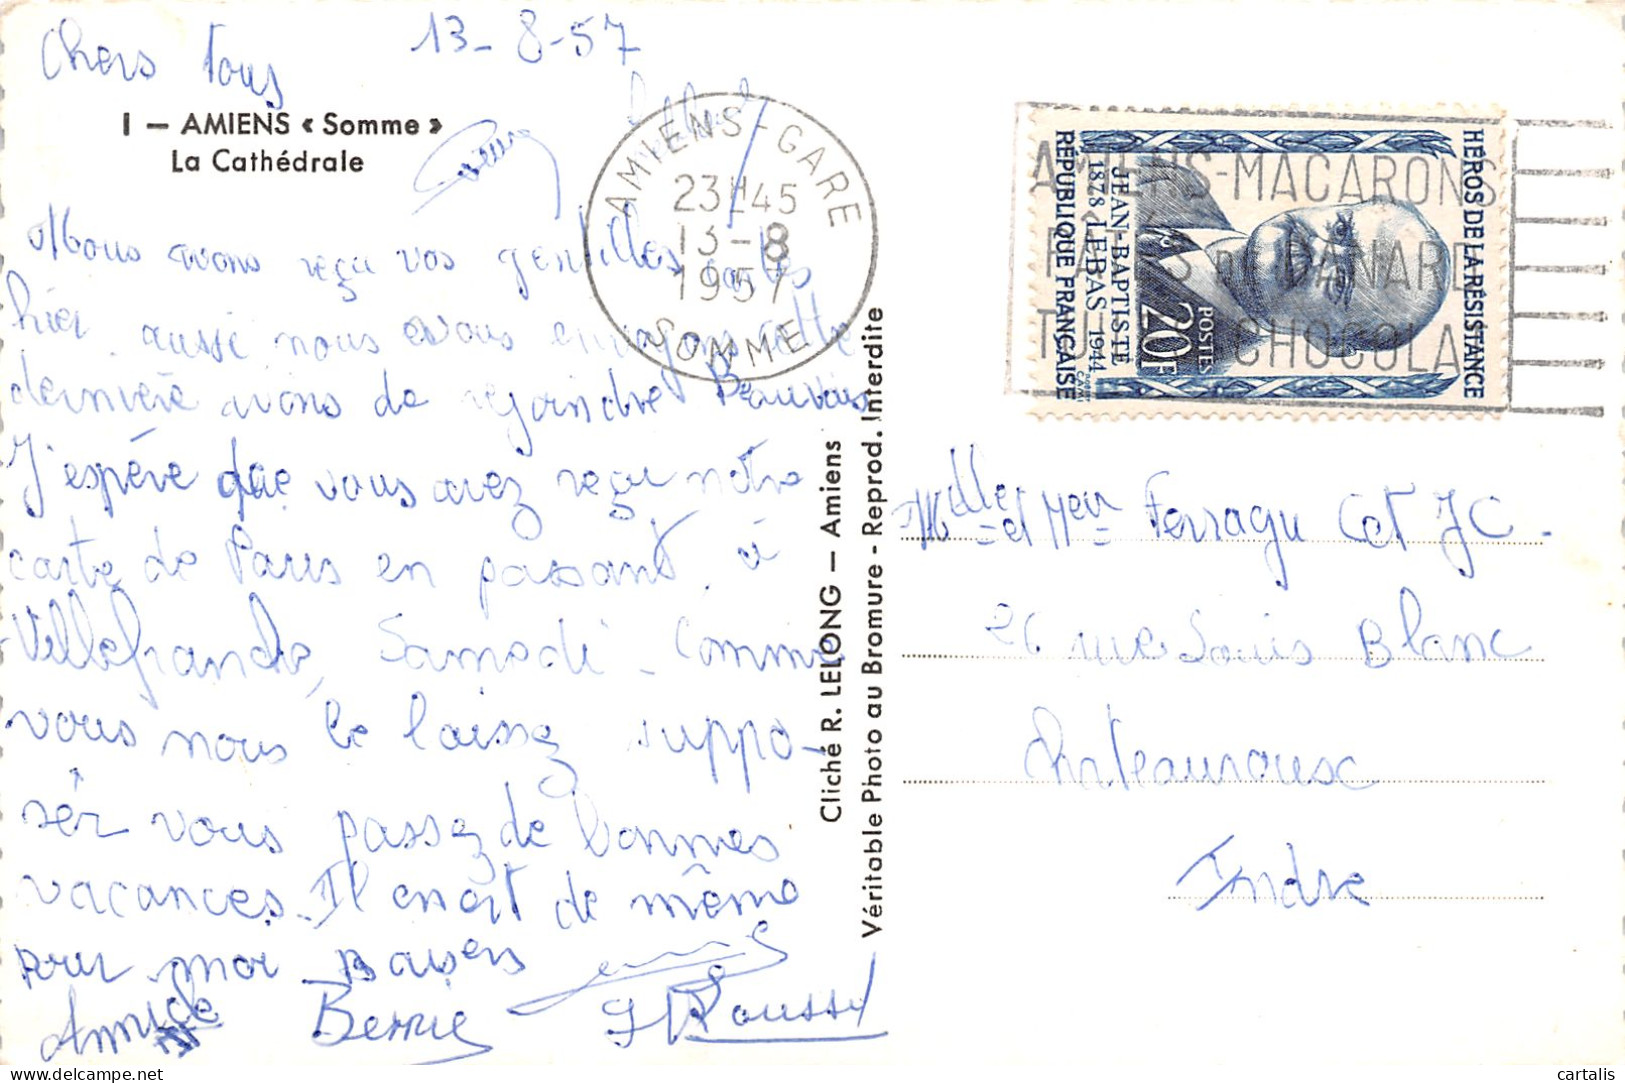 13-8-57
Chers tous
I — AMIENS « Somme »
La Cathédrale
Nous avons reçu vos gentilles cartes
hier aussi nous vous envoyons cette
dernière avons de rejoindre Beauvais
J'espère que vous avez reçu notre
carte de Paris en passant à
Villefranche, Samedi - Comme
vous nous le laissez suppo-
sér vous passez de bonnes
vacances. Il en est de même
pour moi Baisers
Annick Bernie J Roussel
Cliché R. LELONG — Amiens
Véritable Photo au Bromure - Reprod. Interdite
AMIENS-GARE
23H45
13-8
1957
SOMME
AMIENS-MACARONS
PATÉS DE CANARD
CHOCOLA
HEROS DE LA RÉSISTANCE
POSTES 20F
JEAN-BAPTISTE
LEBAS
1878 1944
REPUBLIQUE FRANÇAISE
Mlle et Meur Ferragu C et JC-
26 rue Louis Blanc
Chateauroux
Indre
cartalis